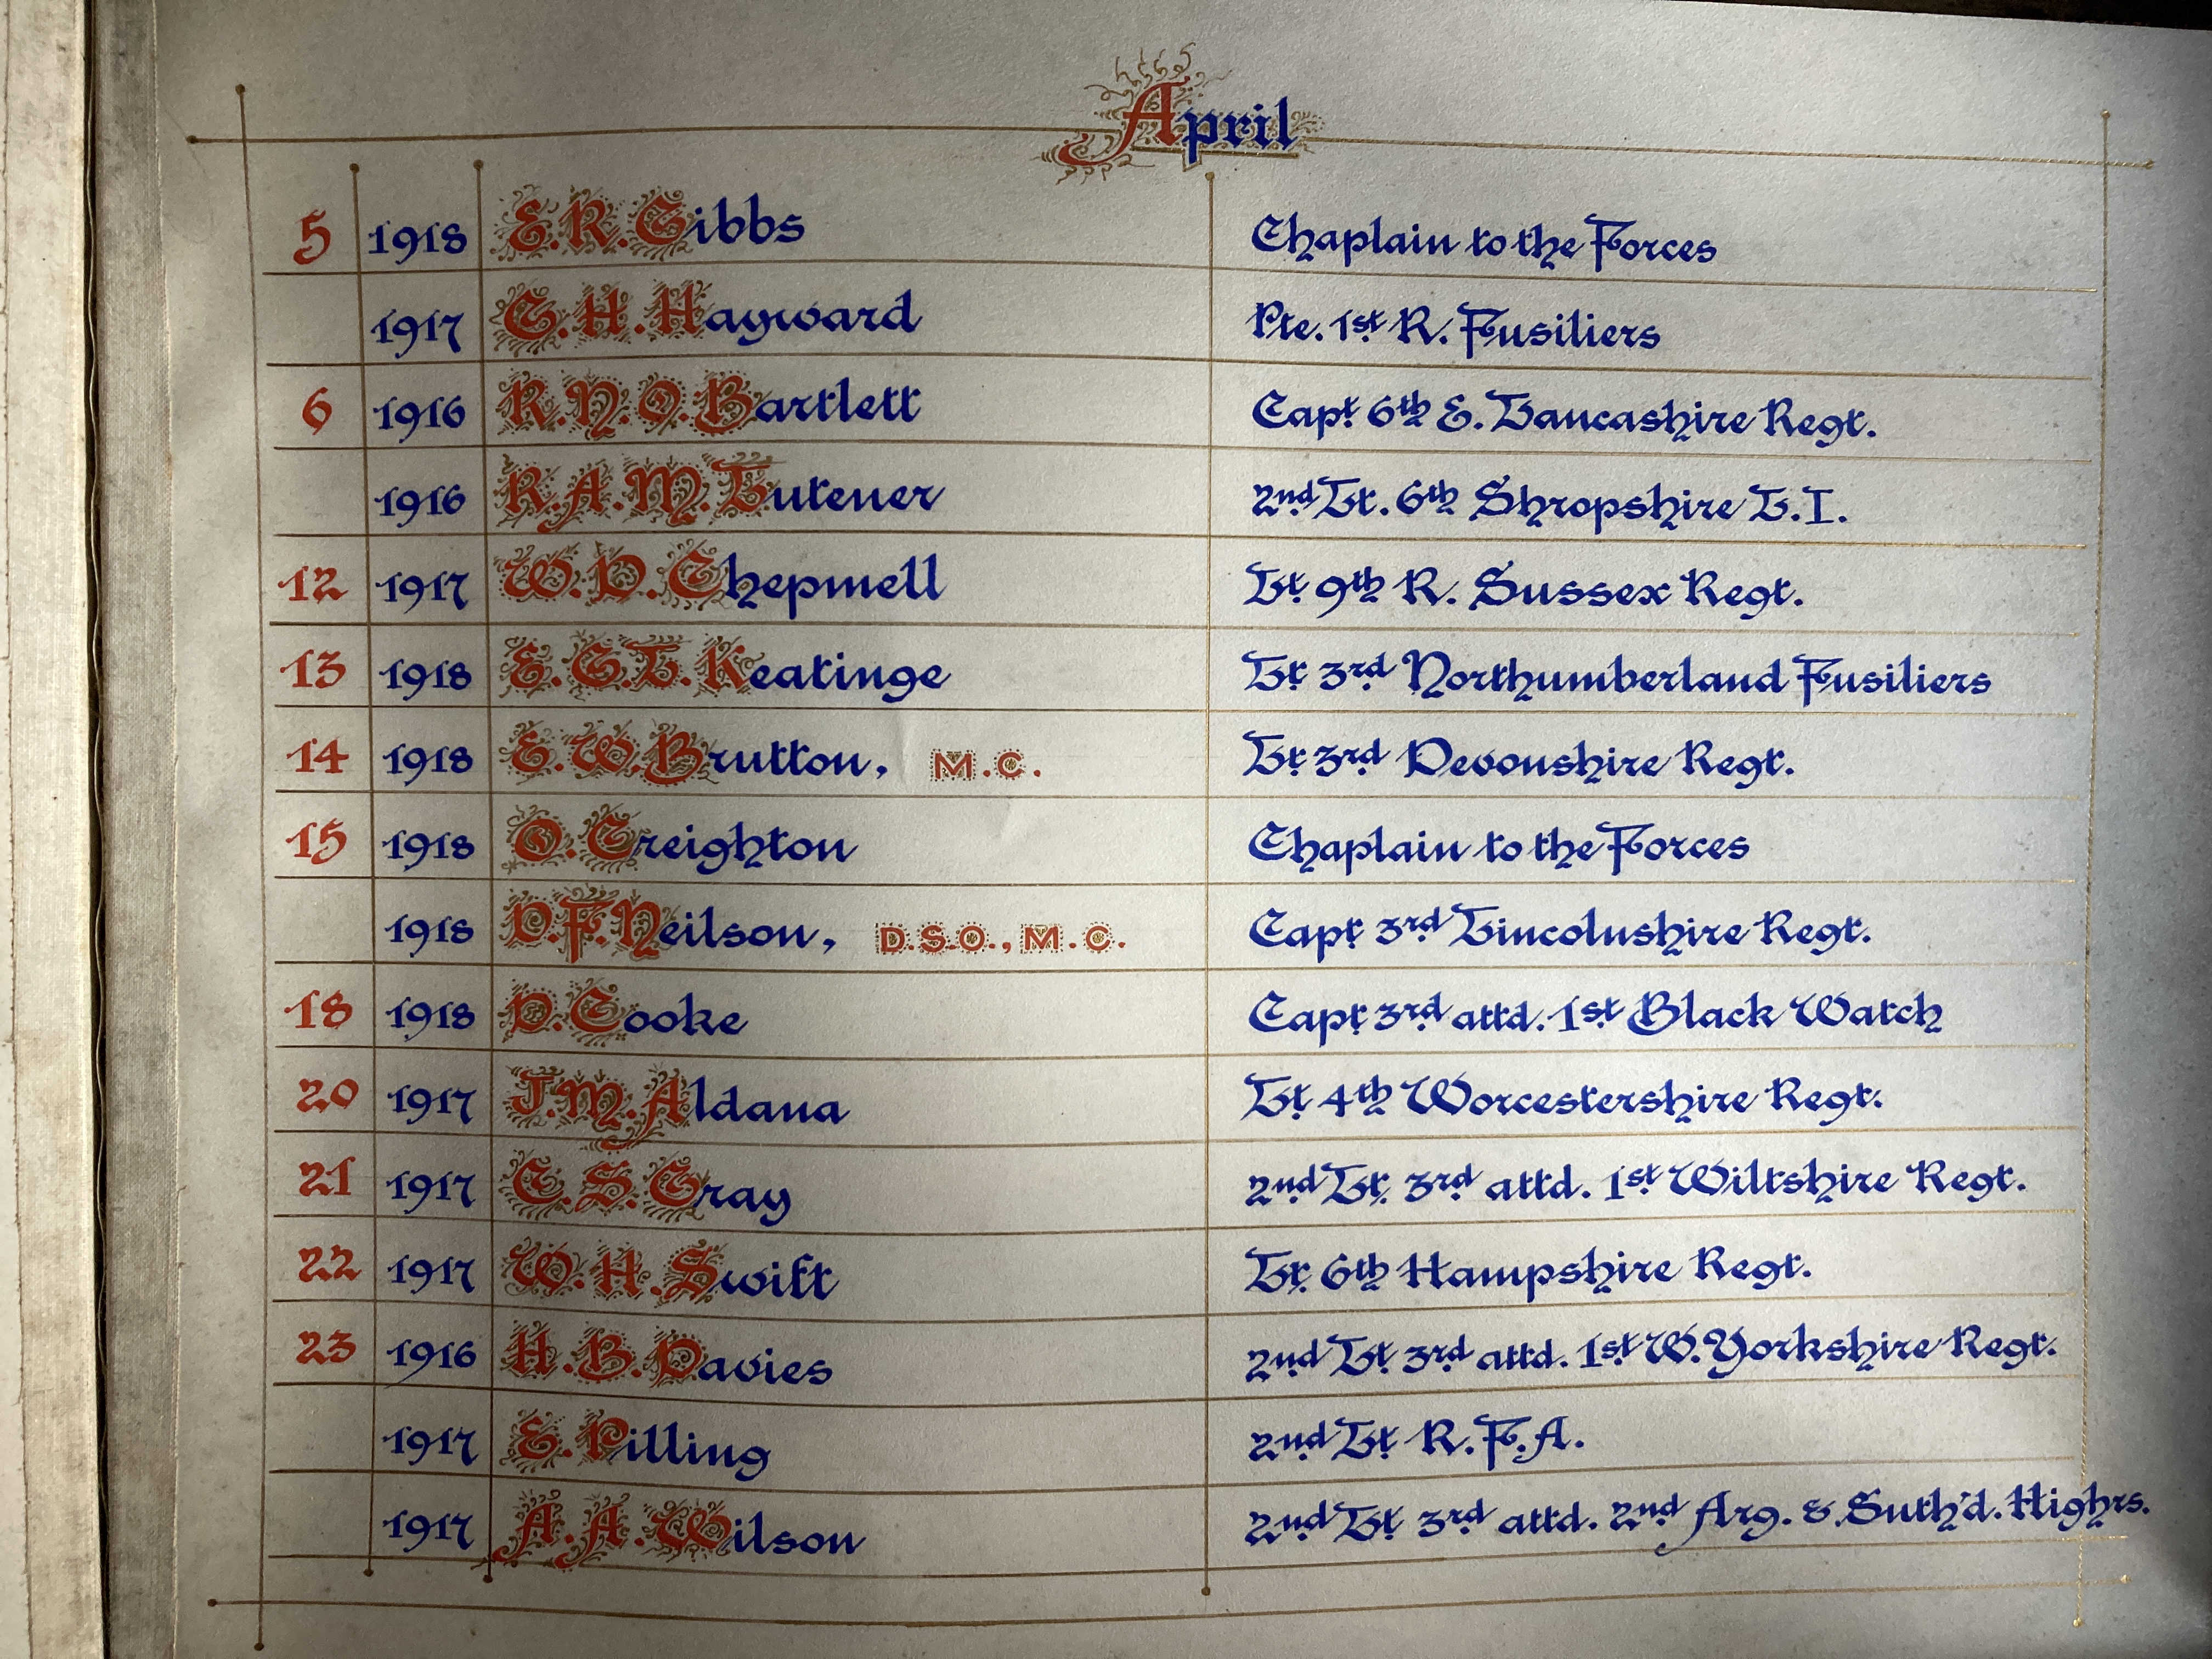 April
5 1918 E.R.Gibbs Chaplain to the Forces
1917 C.H.Hayward Pte. 1st R. Fusiliers
6 1916 R.N.O.Bartlett Capt 6th E. Lancashire Regt.
1916 R.A.M.Lutener 2nd Lt. 6th Shropshire L.I.
12 1917 W.D.Chepmell Lt 9th R. Sussex Regt.
13 1918 E.G.L.Keatinge Lt 3rd Northumberland Fusiliers
14 1918 E.W.Brutton, M.C. Lt 3rd Devonshire Regt.
15 1918 O.Creighton Chaplain to the Forces
1918 D.F.Neilson, D.S.O., M.C. Capt 3rd Lincolnshire Regt.
18 1918 D.Cooke Capt 3rd attd. 1st Black Watch
20 1917 J.M.Aldana Lt 4th Worcestershire Regt.
21 1917 C.S.Gray 2nd Lt 3rd attd. 1st Wiltshire Regt.
22 1917 W.H.Swift Lt 6th Hampshire Regt.
23 1916 H.B.Davies 2nd Lt 3rd attd. 1st W.Yorkshire Regt.
1917 E.Pilling 2nd Lt R.F.A.
1917 A.A.Wilson 2nd Lt 3rd attd. 2nd Arg. & Suth'd. Highrs.